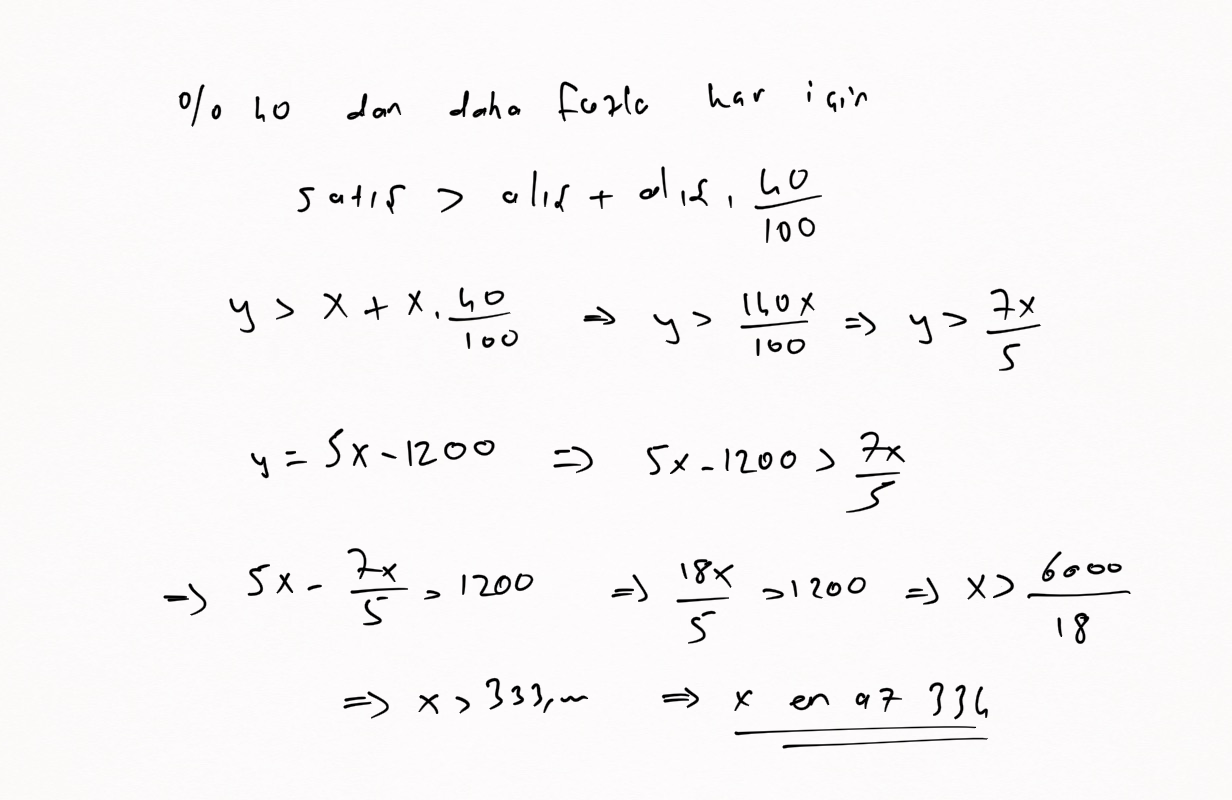 %40 dan daha fazla kar için
satış > alış + alış . 40/100
y > x + x . 40/100 ⇒ y > 140x/100 ⇒ y > 7x/5
y = 5x - 1200 ⇒ 5x - 1200 > 7x/5
⇒ 5x - 7x/5 > 1200 ⇒ 18x/5 > 1200 ⇒ x > 6000/18
⇒ x > 333,... ⇒ x en az 334